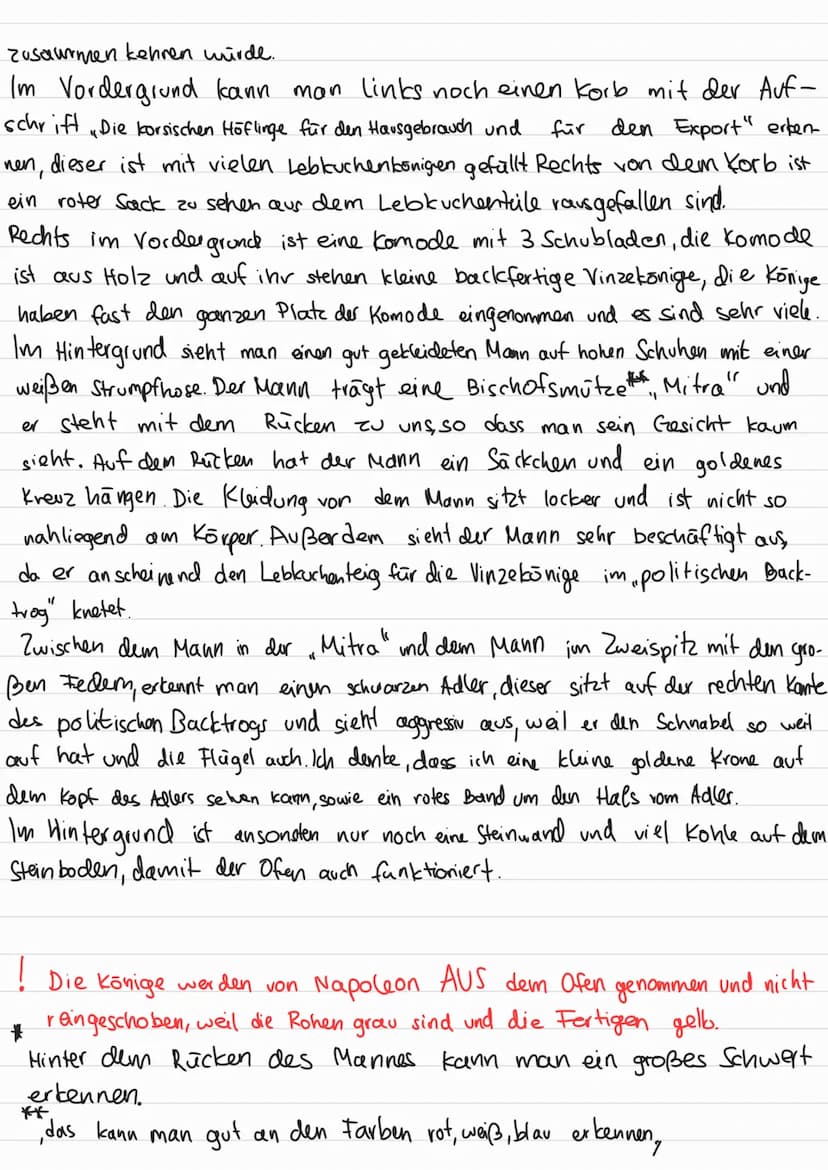 zusammen kehren würde.
Im Vordergrund kann man links noch einen Korb mit der Auf-
schrift „Die korsischen Höflinge für den Hausgebrauch und für den Export" erken-
nen, dieser ist mit vielen Lebkuchenkönigen gefüllt Rechts von dem Korb ist
ein roter Sack zu sehen aus dem Lebkuchenteile rausgefallen sind.
Rechts im Vordergrund ist eine Komode mit 3 Schubladen, die Komode
ist aus Holz und auf ihr stehen kleine backfertige Vinzekönige, die Könige
haben fast den ganzen Platz der Komode eingenommen und es sind sehr viele.
Im Hintergrund sieht man einen gut gekleideten Mann auf hohen Schuhen mit einer
weißen Strumpfhose. Der Mann trägt eine Bischofsmütze „Mitra" und
er steht mit dem Rücken zu uns, so dass man sein Gesicht kaum
sieht. Auf dem Rücken hat der Mann ein Säckchen und ein goldenes
Kreuz hängen. Die Kleidung von dem Mann sitzt locker und ist nicht so
nahliegend am Körper. Außerdem sieht der Mann sehr beschäftigt aus,
da er anscheinend den Lebkuchenteig für die Vinzekönige im „politischen Back-
trog" knetet.
Zwischen dem Mann in der „Mitra" und dem Mann im Zweispitz mit den gro-
ßen Federn, erkennt man einen schwarzen Adler, dieser sitzt auf der rechten Kante
des politischen Backtrogs und sieht aggressiv aus, weil er den Schnabel so weit
auf hat und die Flügel auch. Ich denke, dass ich eine kleine goldene Krone auf
dem Kopf des Adlers sehen kann, sowie ein rotes Band um den Hals vom Adler.
Im Hintergrund ist ansonsten nur noch eine Steinwand und viel Kohle auf dem
Steinboden, damit der Ofen auch funktioniert.
! Die Könige werden von Napoleon AUS dem Ofen genommen und nicht
reingeschoben, weil die Rohen grau sind und die Fertigen gelb.
* Hinter dem Rücken des Mannes kann man ein großes Schwert
erkennen.
** , das kann man gut an den Farben rot, weiß, blau erkennen,